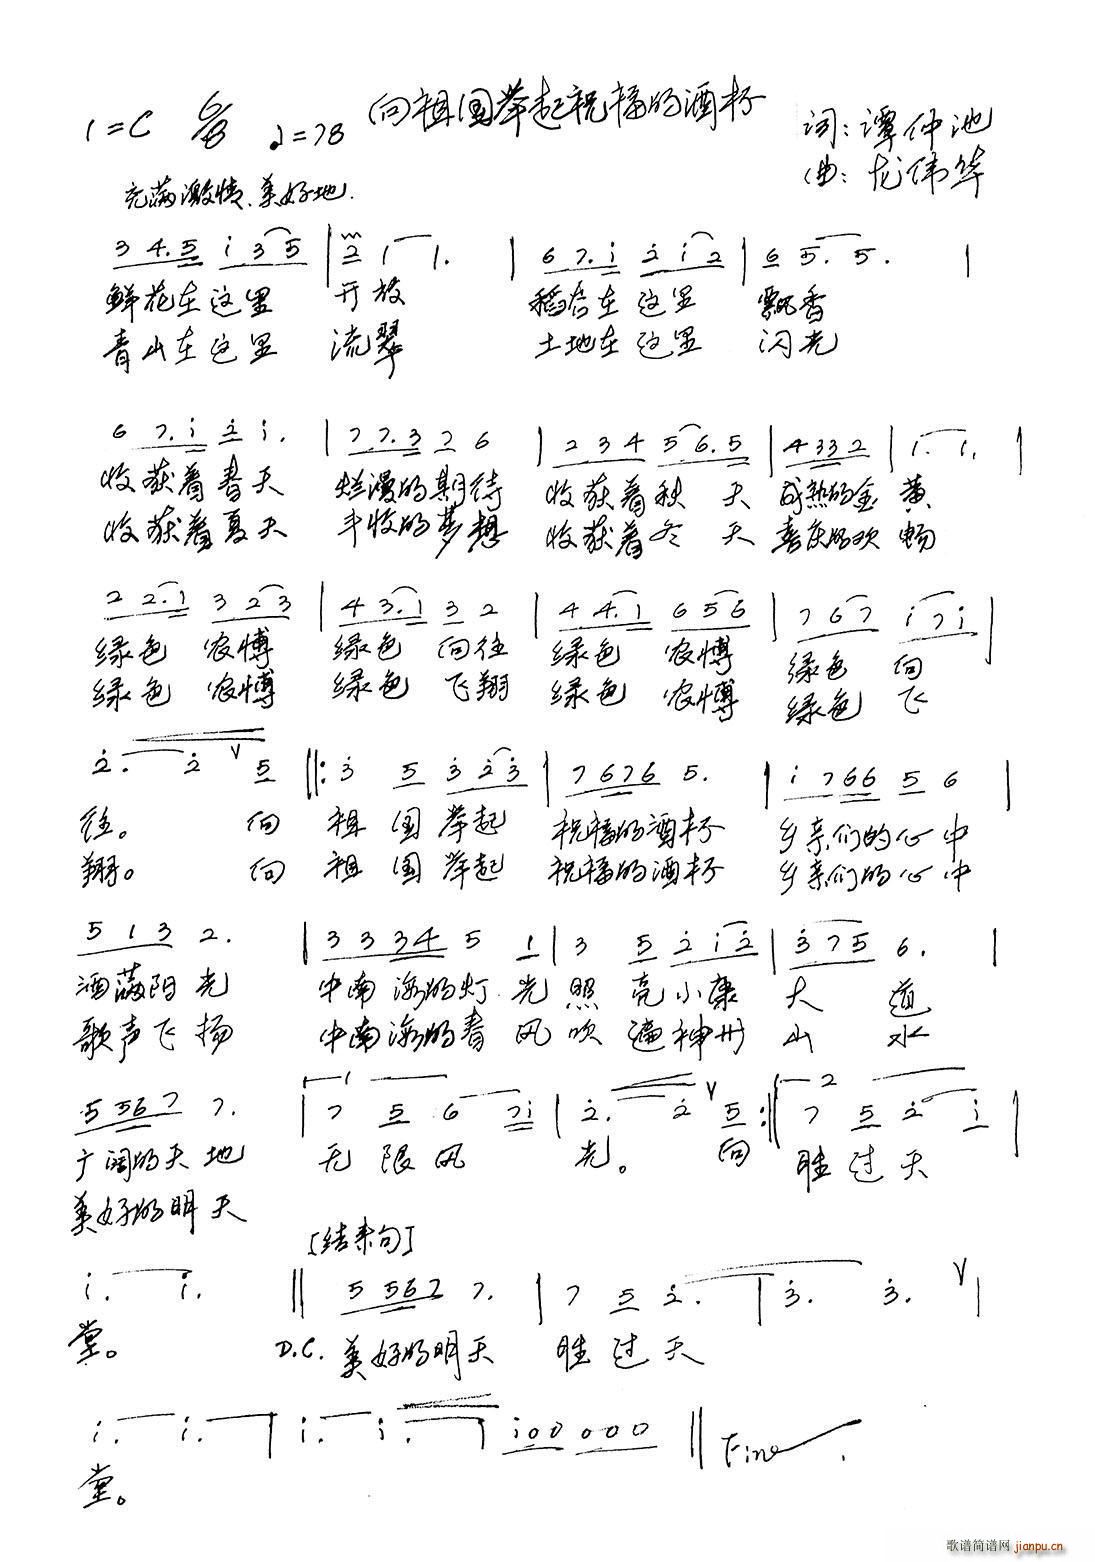 向祖国举起祝福的酒杯
1=C 6/8 ♩=78
词：谭仲池
曲：龙伟华
充满激情、美好地.
3 4. 5 i 3 5 | 2 1 1. | 6 7. i 2 i 2 | 6 5. 5. |
鲜花在这里 开放 稻谷在这里 飘香
青山在这里 流翠 土地在这里 闪光
6 7. i 2 i. | 7 7. 3 7 6 | 2 3 4 5. 6. 5 | 4 3 3 2 | 1. 1. |
收获着春天 烂漫的期待 收获着秋 天 成熟的金 黄
收获着夏天 丰收的梦想 收获着冬 天 喜庆的欢 畅
2 2. 1 3 2 3 | 4 3. 1 3 2 | 4 4. 1 6 5 6 | 7 6 7 i 7 i |
绿色 向往 绿色 绿色 向
绿色 飞翔 绿色 绿色 飞
2. 2 V 5 ‖: 3 5 3 2 3 | 7 6 7 6 5. | i 7 6 6 5 6 |
往。 向 祖 国 举起 祝福的酒杯 乡亲们的心中
翔。 向 祖 国 举起 祝福的酒杯 乡亲们的心中
5 1 3 2. | 3 3 3 4 5 1 | 3 5 2 i 2 | 3 7 5 6. |
洒满阳光 中南海的灯 光 照 亮小康 大 道
歌声飞扬 中南海的春 风 吹 遍神州 山 水
5 5 6 7 7. | 1 7 5 6 7 i | 2. 2 V 5 :‖ 2 7 5 2 i |
广阔的天地 无 限 风 光。 向 胜 过 天
美好的明天
[结束句]
i. i. ‖ 5 5 6 7 7. | 7 5 2. | 3. 3. V |
堂。 D.C. 美好的明天 胜 过 天
i. i. | i. i. | i 0 0 0 0 0 ‖ Fine.
堂。
歌谱简谱网 jianpu.cn